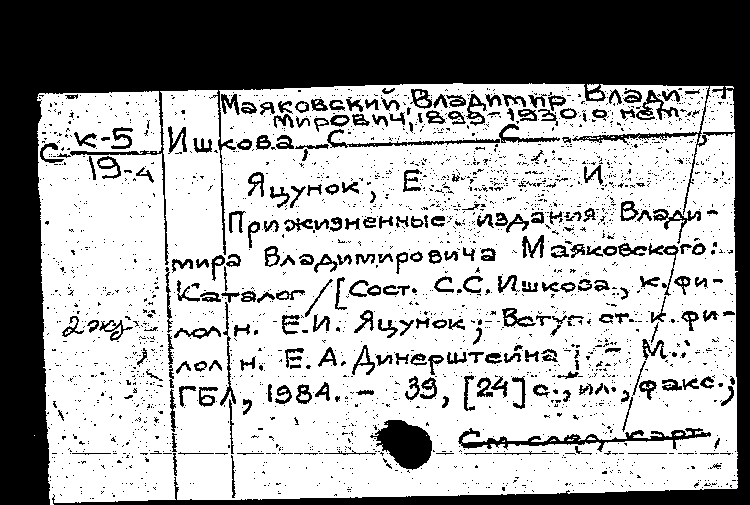 Маяковский, Владимир Влади-
мирович, 1893-1930, о нем
С К-5
19-4
Ишкова, С С
Яцунок, Е И
Прижизненные издания Влади-
мира Владимировича Маяковского:
Каталог / [Сост. С.С. Ишкова, к. фи-
лол. н. Е.И. Яцунок; Вступ. ст. к. фи-
лол. н. Е.А. Динерштейна]. - М.:
2 экз
ГБЛ, 1984. - 39, [24] с., ил., факс.;
См. след. карт.